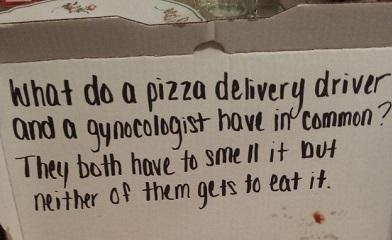 What do a pizza delivery driver
and a gynocologist have in common?
They both have to smell it but
neither of them gets to eat it.